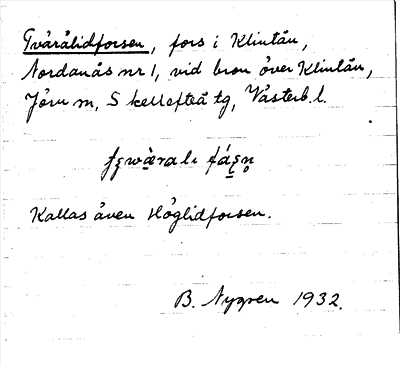 Tvärålidforsen, fors i Klintån,
Nordanås nr 1, vid bron över Klintån,
Jörn sn, Skellefteå tg, Västerb. l.
Kallas även Höglidforsen.
B. Nygren 1932.